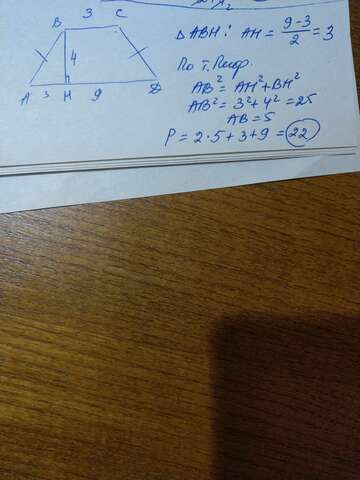 B 3 C
4
A 3 H 9 D
△ABH: AH = \frac{9-3}{2} = 3
По т. Пиф.
AB² = AH² + BH²
AB² = 3² + 4² = 25
AB = 5
P = 2·5 + 3 + 9 = 22